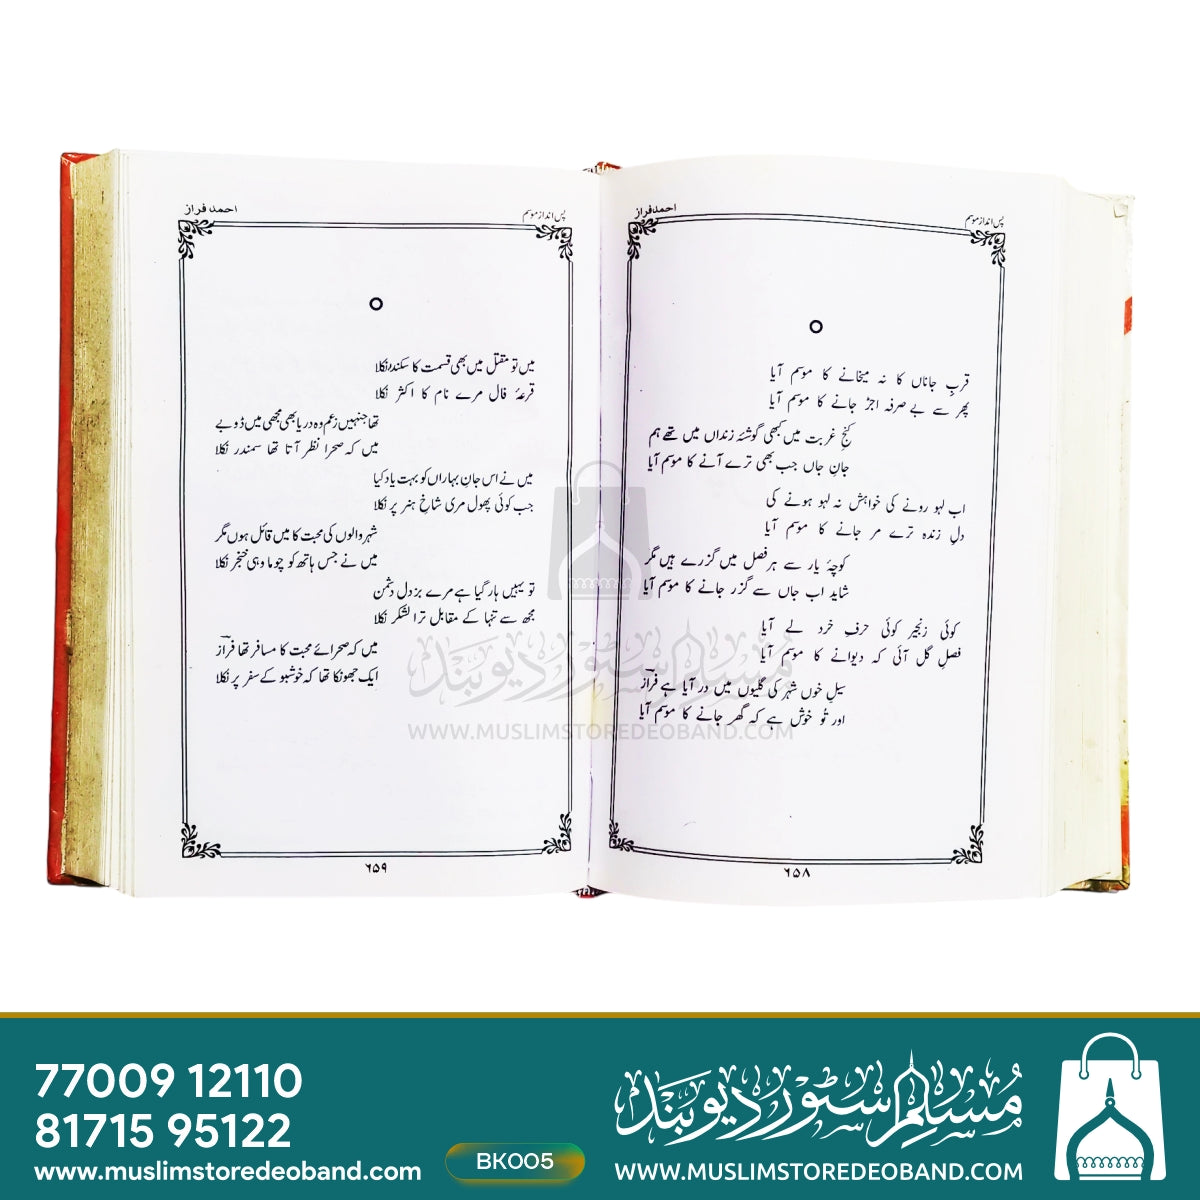 پس انداز موسم
احمد فراز
قربِ جاناں کا نہ میخانے کا موسم آیا
پھر سے بے صرفہ اجڑ جانے کا موسم آیا
کنجِ غربت میں کبھی گوشۂ زنداں میں تھے ہم
جانِ جاں جب بھی ترے آنے کا موسم آیا
اب لہو رونے کی خواہش نہ لہو ہونے کی
دلِ زندہ ترے مر جانے کا موسم آیا
کوچۂ یار سے ہر فصل میں گزرے ہیں مگر
شاید اب جاں سے گزر جانے کا موسم آیا
کوئی زنجیر کوئی حرفِ خرد لے آیا
فصلِ گل آئی کہ دیوانے کا موسم آیا
سیلِ خوں شہر کی گلیوں میں در آیا ہے فرازؔ
اور تُو خوش ہے کہ گھر جانے کا موسم آیا
۶۵۸
پس انداز موسم
احمد فراز
میں تو مقتل میں بھی قسمت کا سکندر نکلا
قرعۂ فال مرے نام کا اکثر نکلا
تھا جنہیں زعم وہ دریا بھی مجھی میں ڈوبے
میں کہ صحرا نظر آتا تھا سمندر نکلا
میں نے اس جانِ بہاراں کو بہت یاد کیا
جب کوئی پھول مری شاخِ ہنر پر نکلا
شہر والوں کی محبت کا میں قائل ہوں مگر
میں نے جس ہاتھ کو چوما وہی خنجر نکلا
تو یہیں ہار گیا ہے مرے بزدل دشمن
مجھ سے تنہا کے مقابل ترا لشکر نکلا
میں کہ صحرائے محبت کا مسافر تھا فرازؔ
ایک جھونکا تھا کہ خوشبو کے سفر پر نکلا
۶۵۹
مسلم سٹور دیوبند
WWW.MUSLIMSTOREDEOBAND.COM
77009 12110
81715 95122
www.muslimstoredeoband.com
BK005
مُسلم سٹور دیوبند
WWW.MUSLIMSTOREDEOBAND.COM